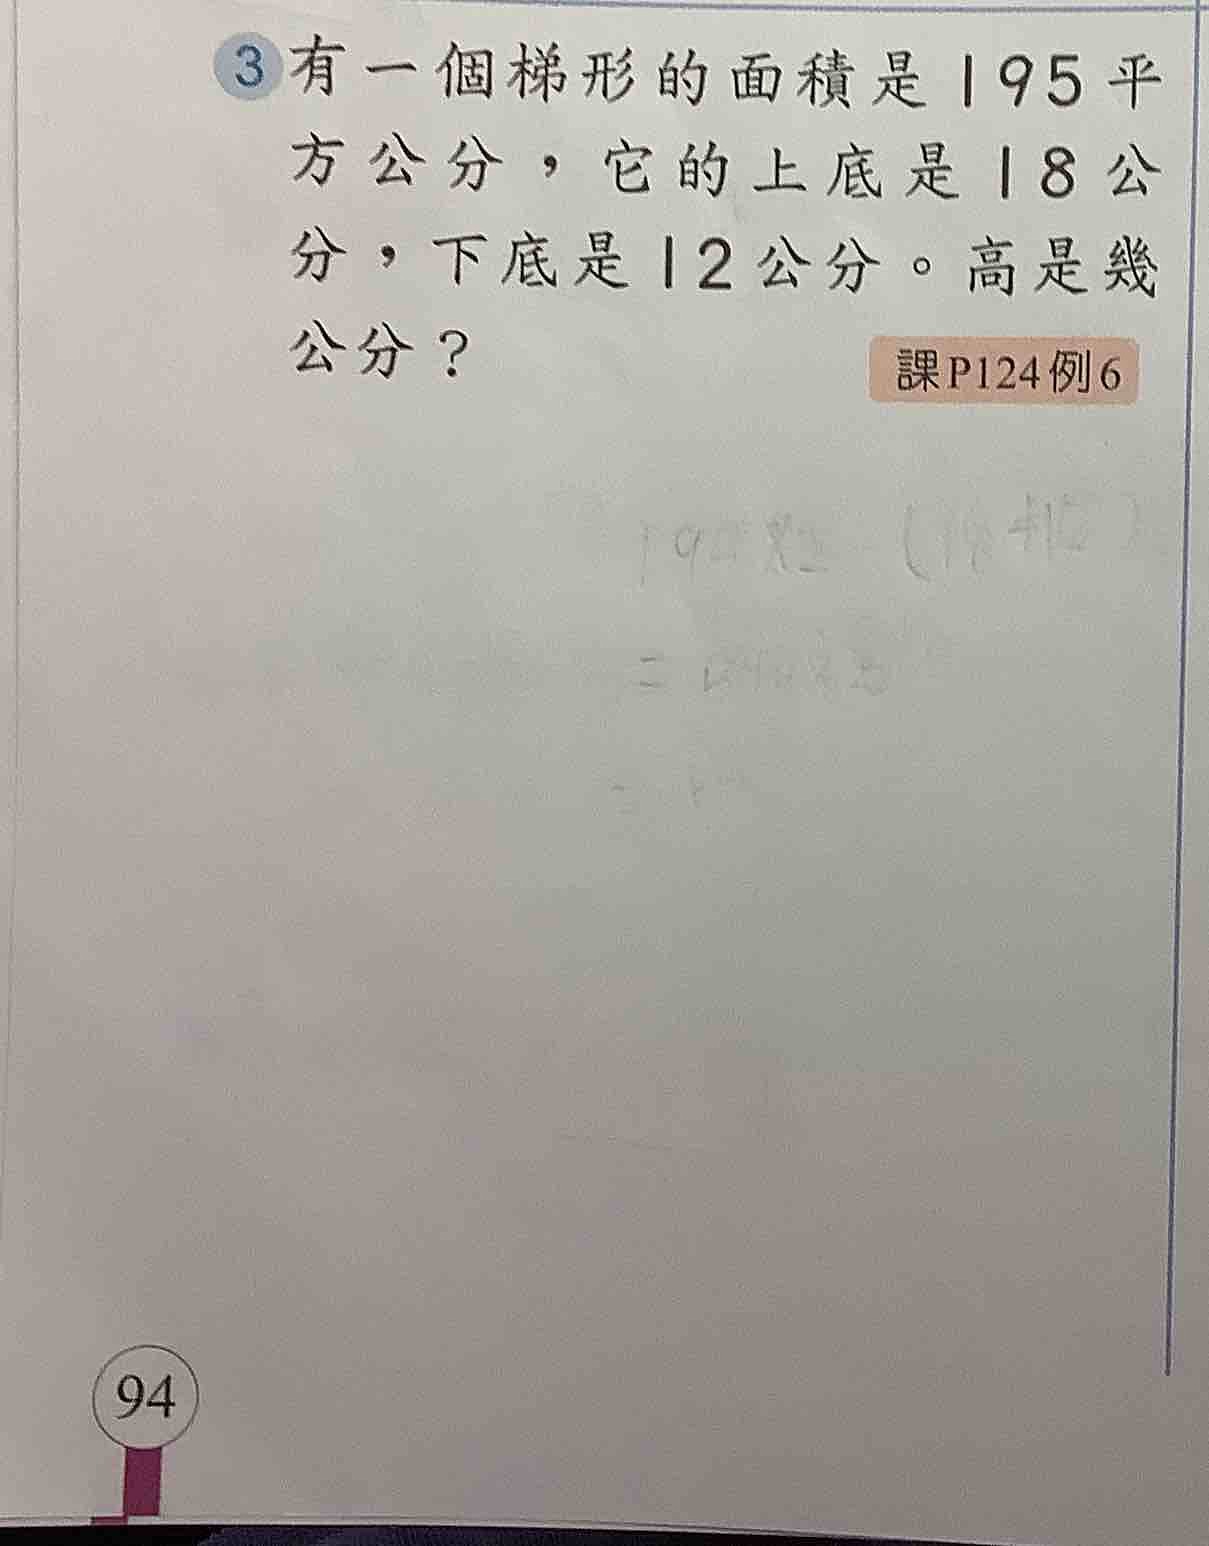 3 有一個梯形的面積是195平
方公分，它的上底是18公
分，下底是12公分。高是幾
公分？
課P124例6
94